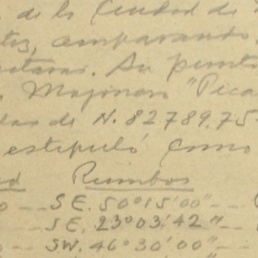 de la Ciudad de
amparando
Su punto
Mojonera "Pica
das de N. 82789.75
estipuló como
Rumbos
S E. 50° 15' 00"
S E. 23° 03' 42"
S W. 46° 30' 00"